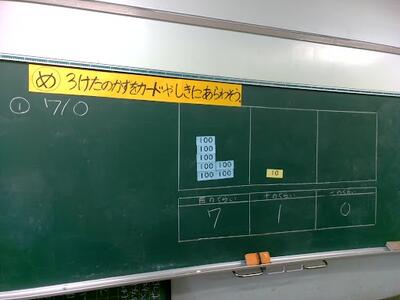 め 3けたのかずをカードやしきにあらわそう。
① 710
100
100
100
100 100
100 100
10
百のくらい 十のくらい 一のくらい
7 1 0